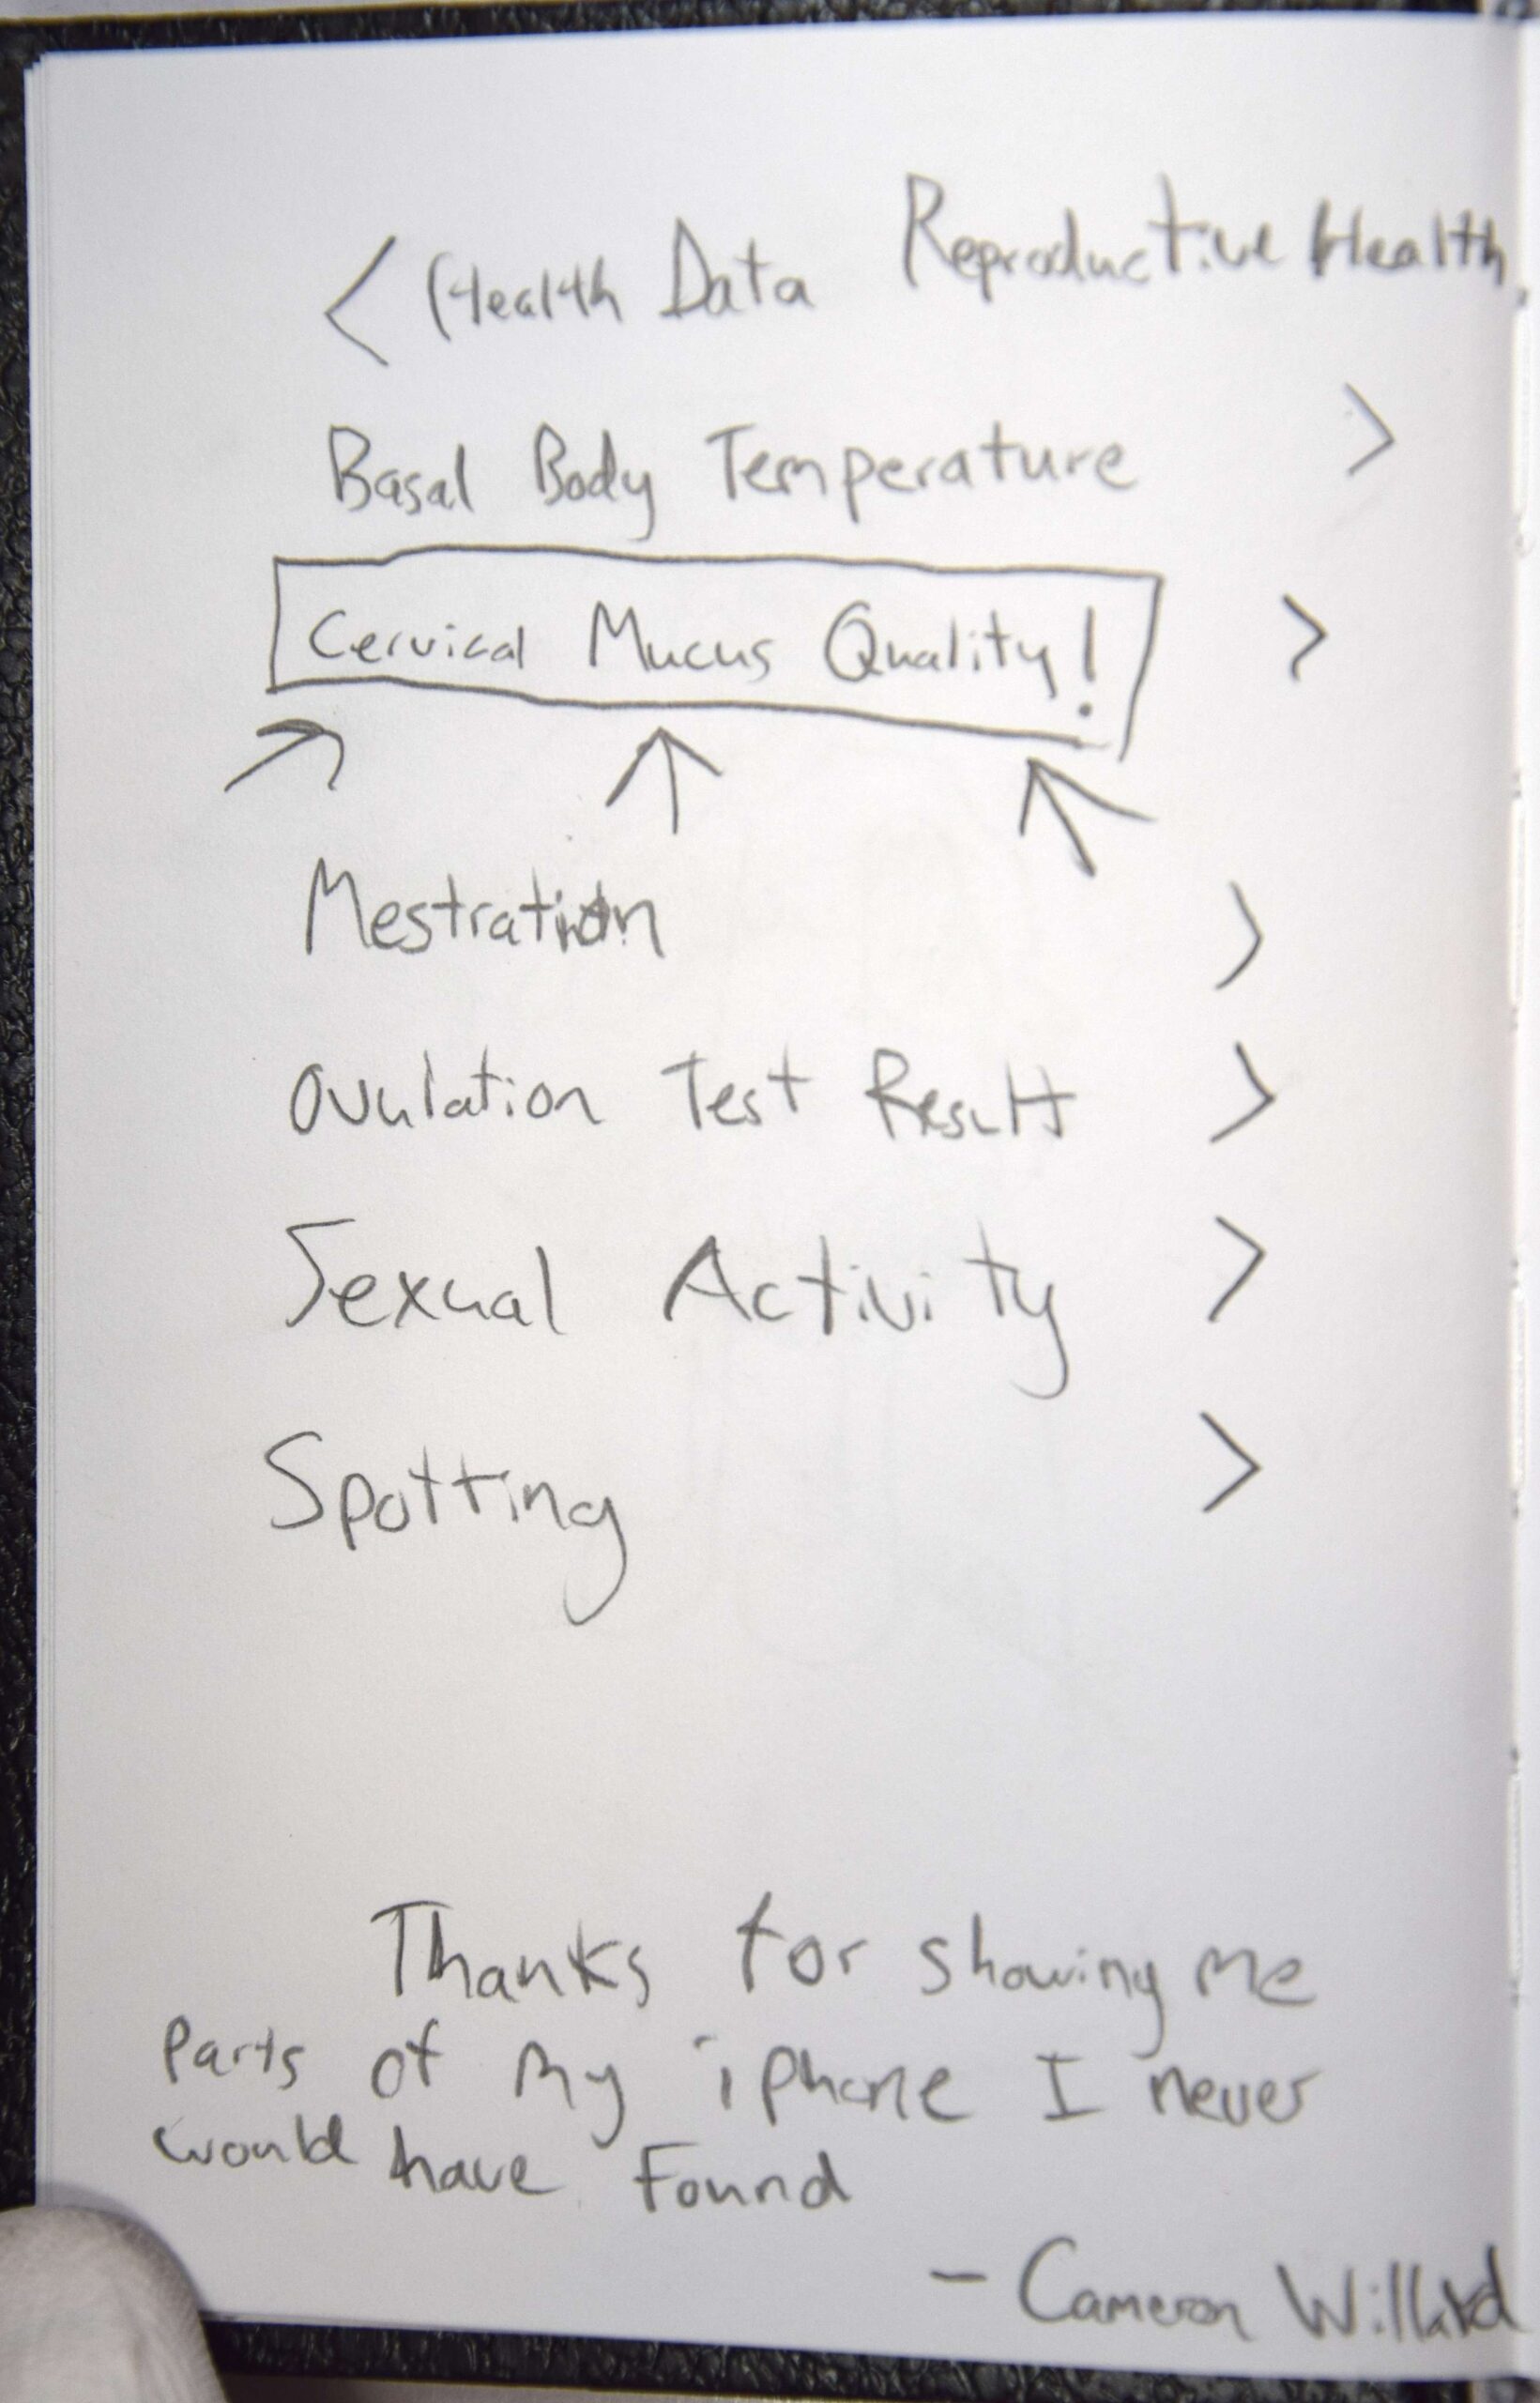 < Health Data Reproductive Health
Basal Body Temperature >
Cervical Mucus Quality! >
Mestration >
Ovulation Test Result >
Sexual Activity >
Spotting >
Thanks for showing me
Parts of my iphone I never
would have Found
- Cameron Willard